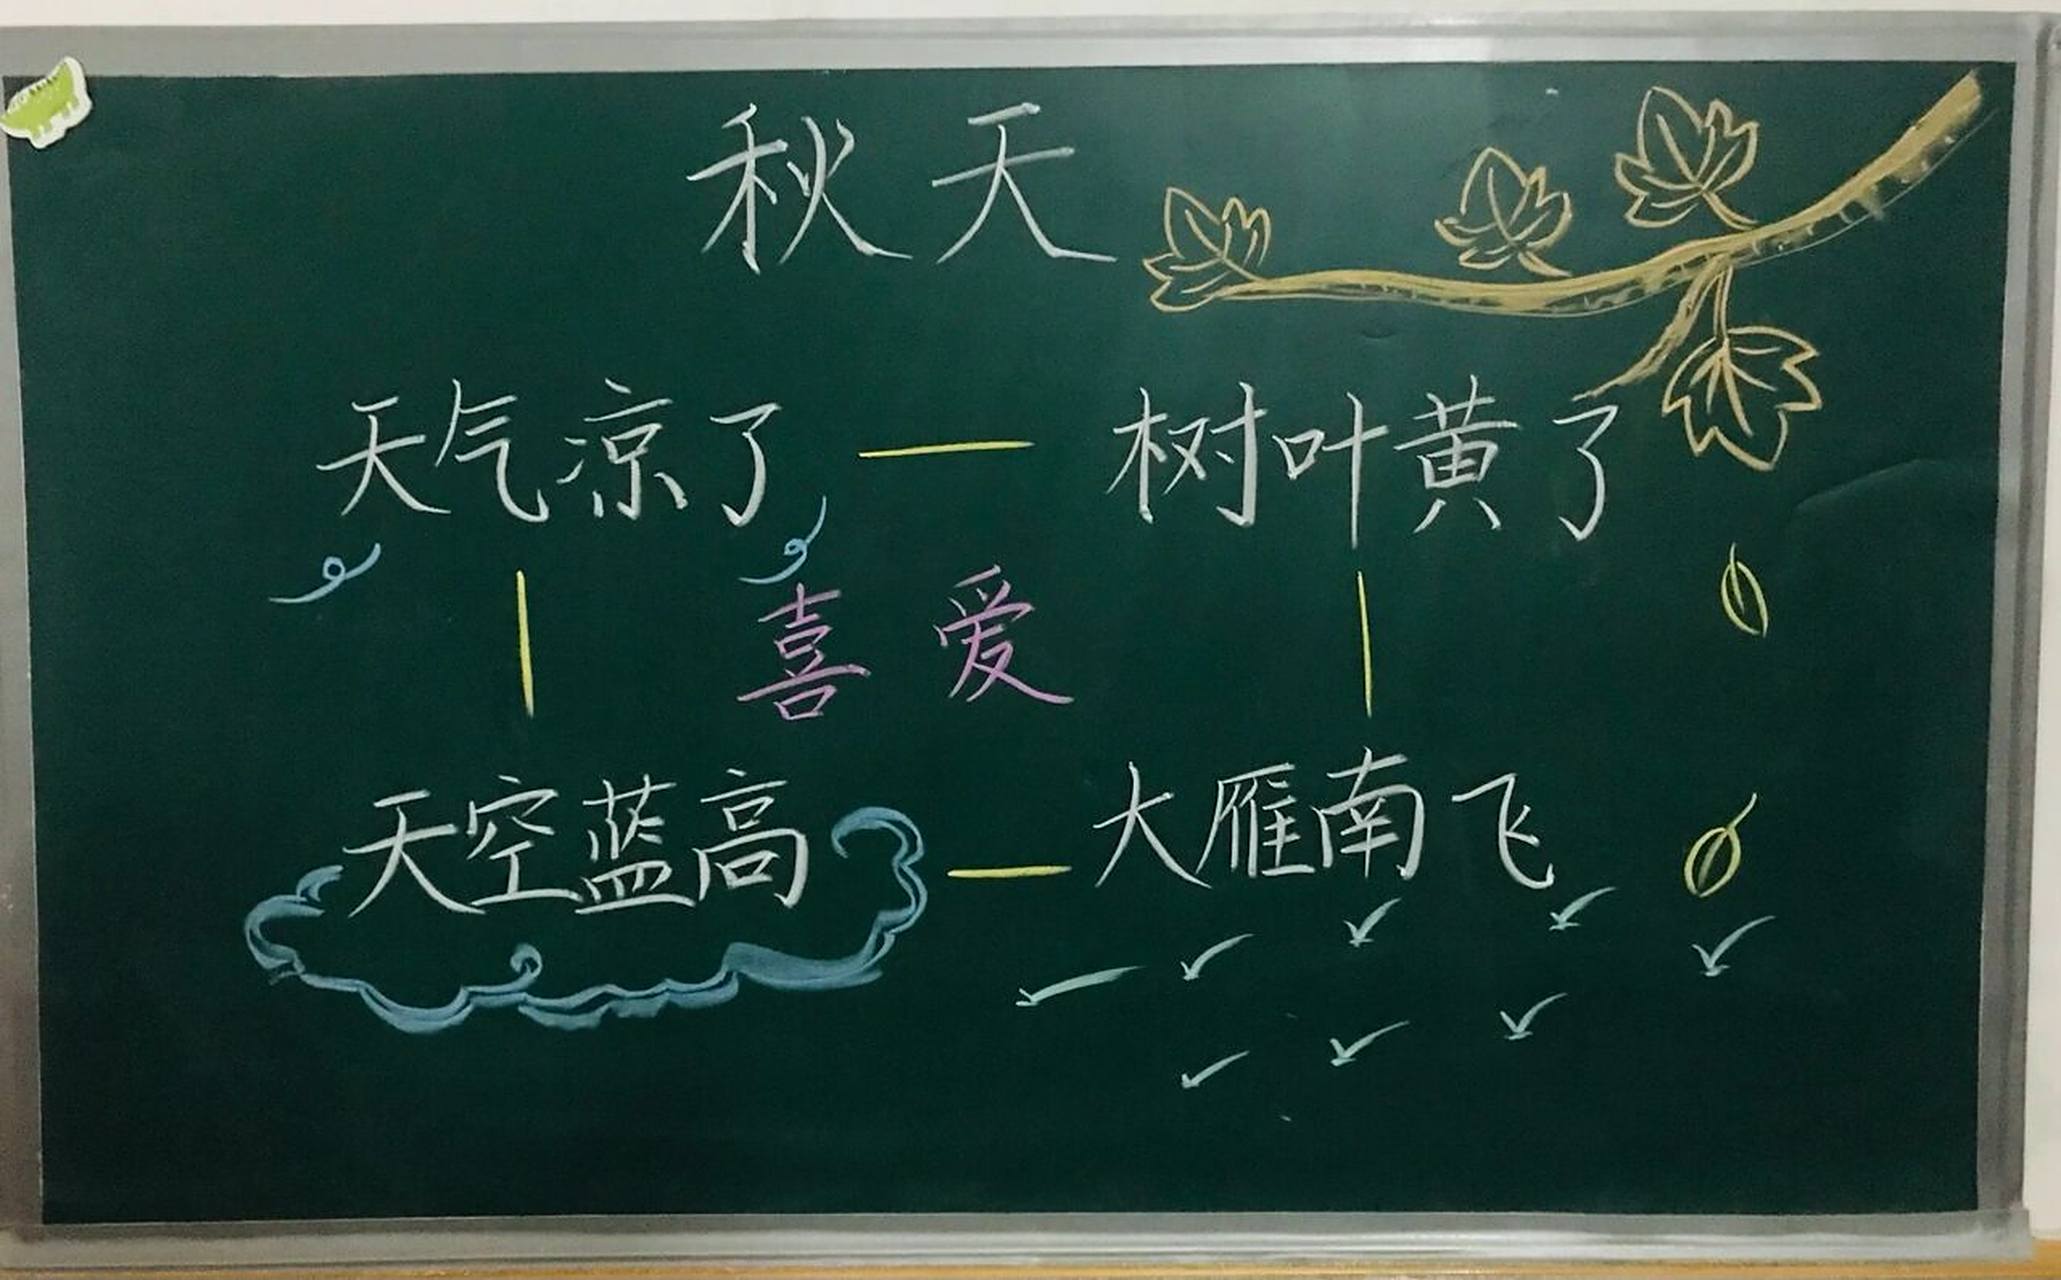 秋天
天气凉了 — 树叶黄了
喜爱
天空蓝高 — 大雁南飞